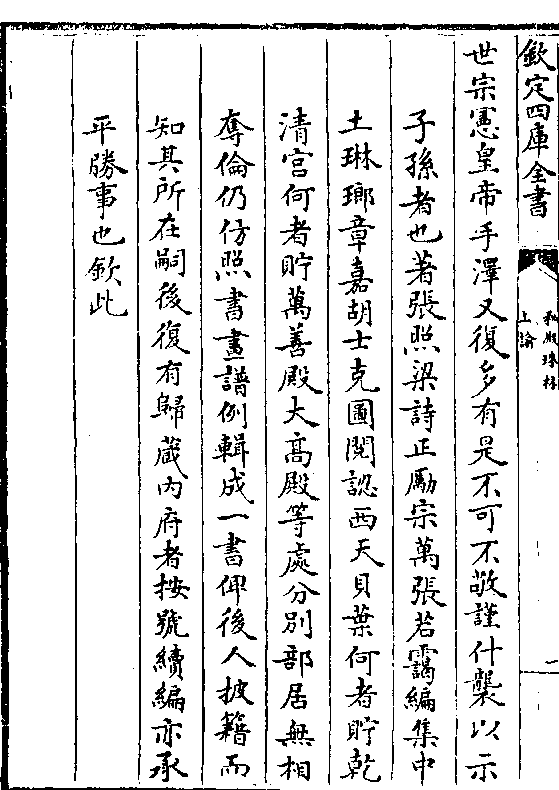 欽定四庫全書
秘殿珠林
上諭
一
世宗憲皇帝手澤又復多有是不可不敬謹什襲以示
子孫者也著張照梁詩正勵宗萬張若靄編集中
土琳瑯章嘉胡土克圖閱認西天貝葉何者貯乾
清宮何者貯萬善殿大高殿等處分別部居無相
奪倫仍仿照書畫譜例輯成一書俾後人披籍而
知其所在嗣後復有歸藏內府者按號續編亦承
平勝事也欽此